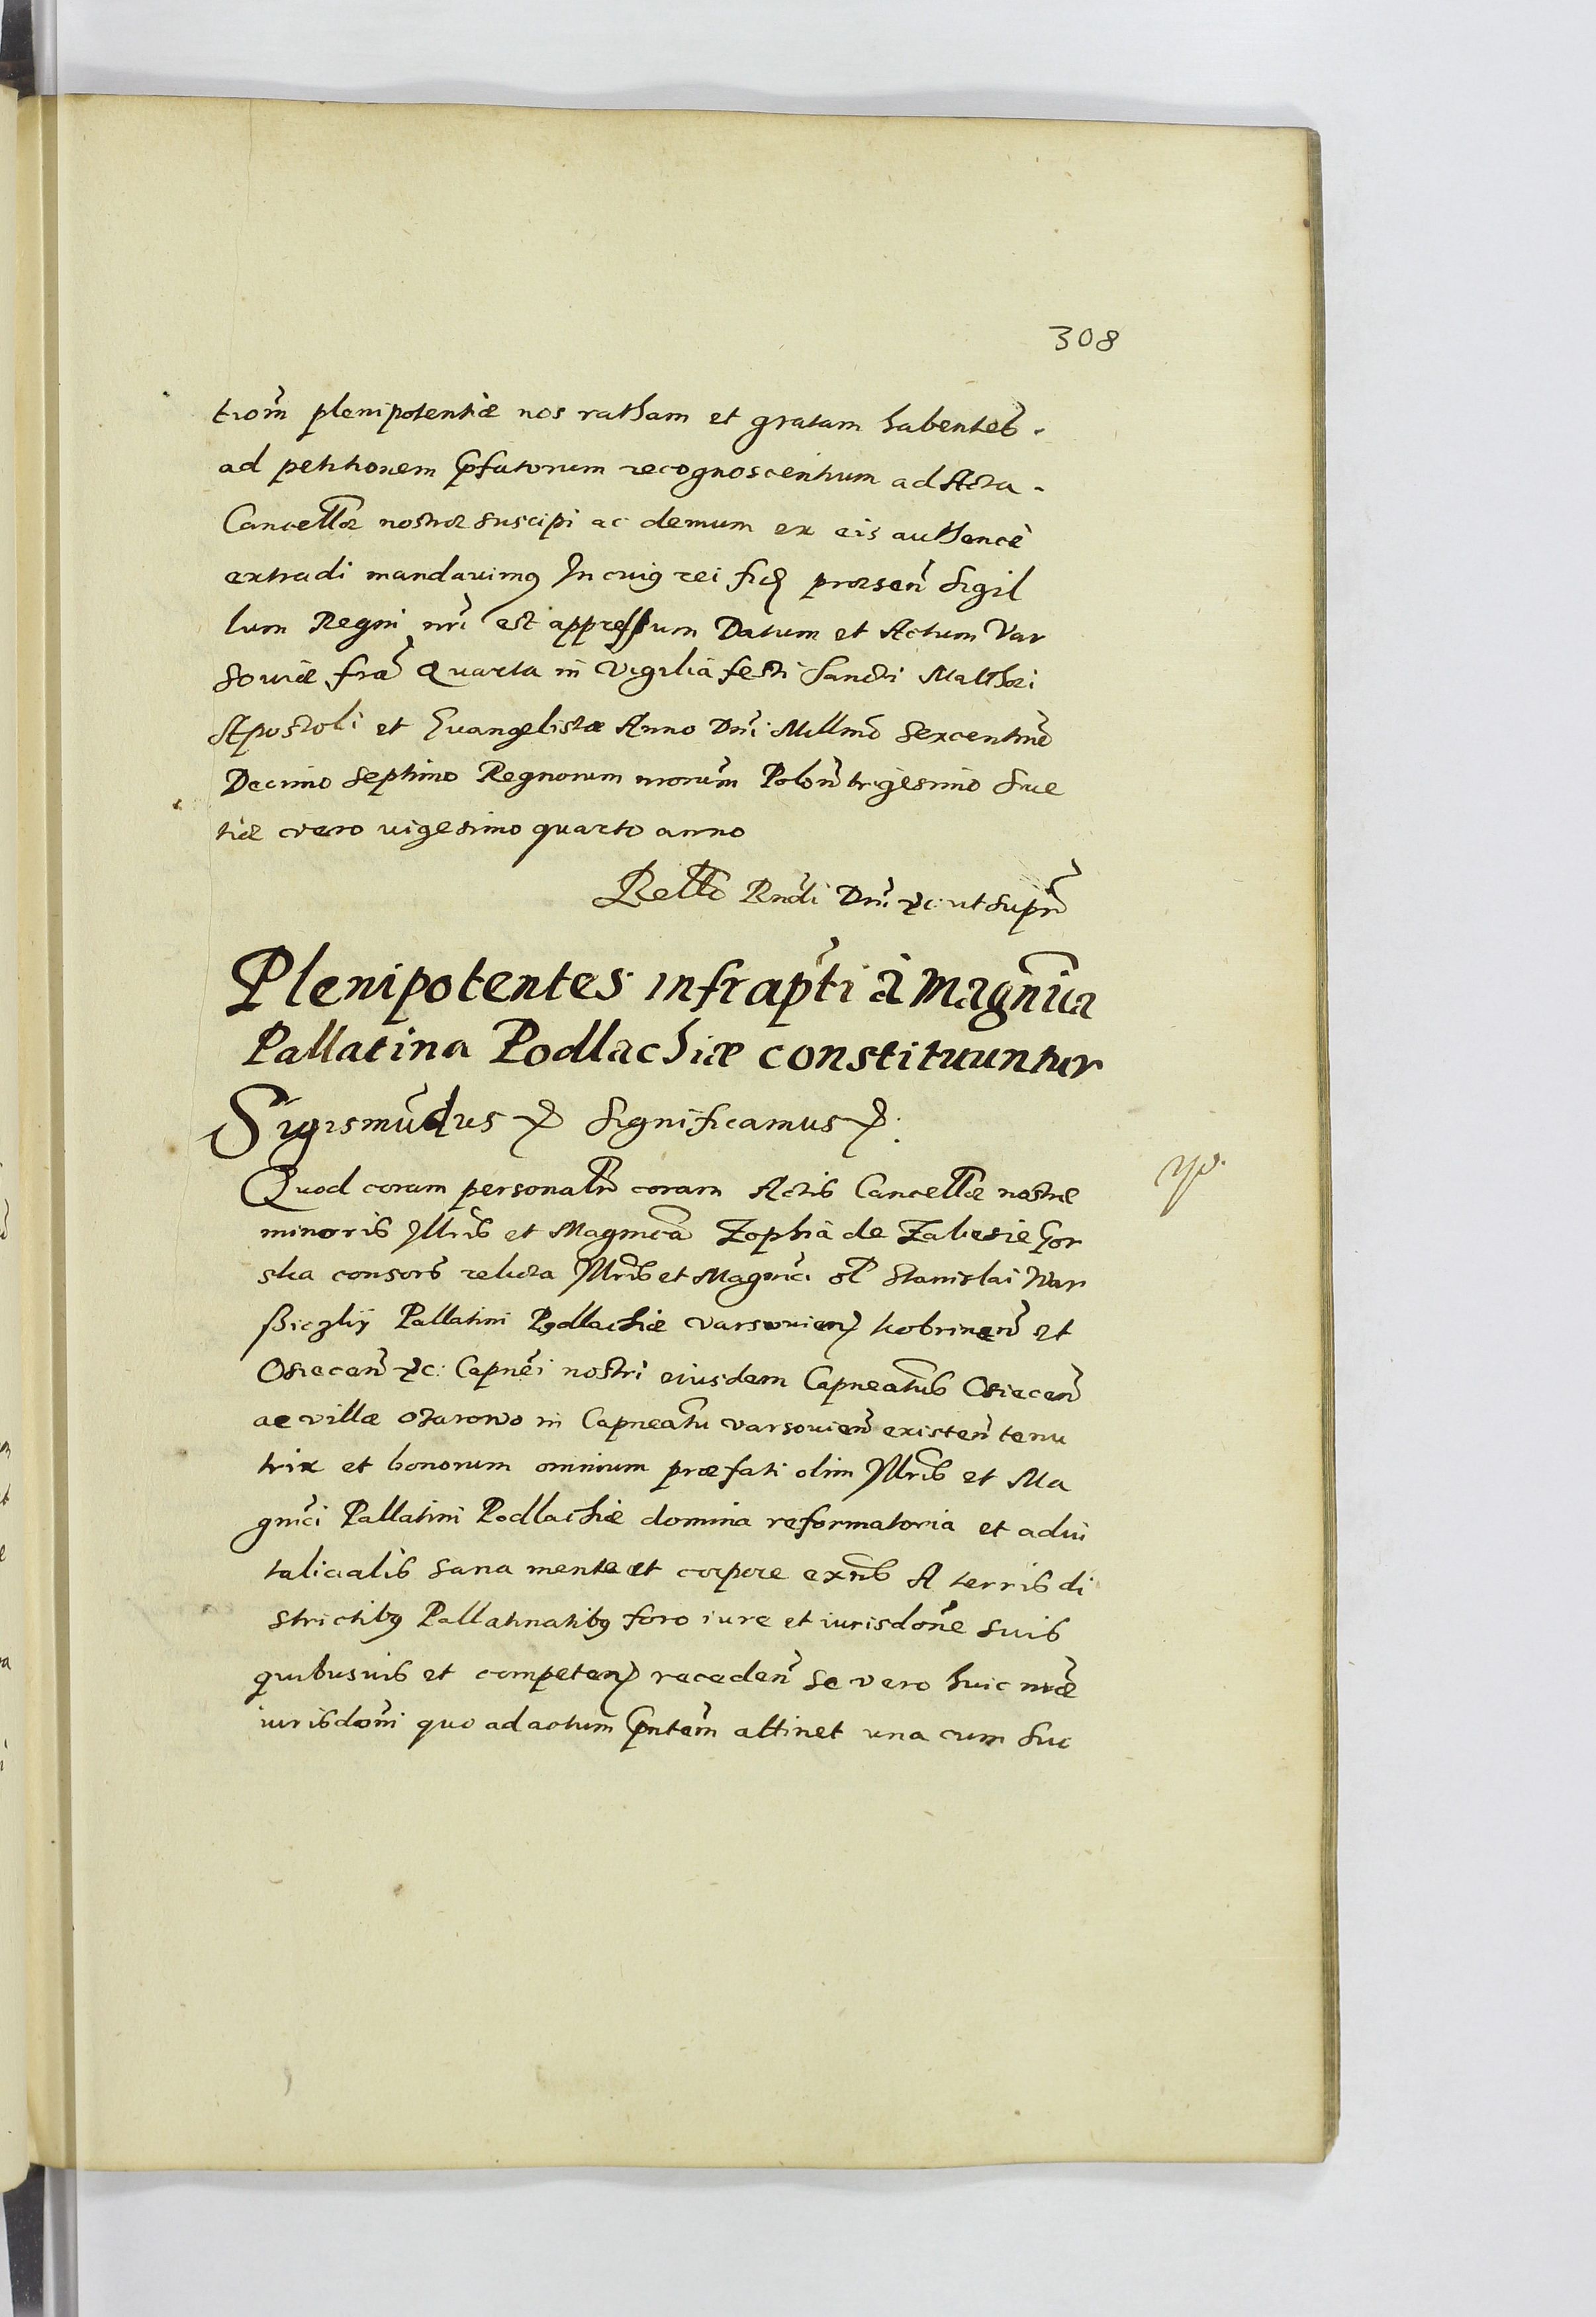 308
tiom̃ plenipotentiæ nos ratham et gratam habentes.
ad petitionem p̃fatorum recognoscentium ad Acta.
Cancellæ nostræ suscipi ac demum ex eis authencè
extradi mandavimꝯ In cuiꝯ rei fid præsen̄ Sigil
lum Regni nr̃i est appressum Datum et Actum Var
soviæ fr̃a Quarta in Vigilia festi Sancti Matthæi
Apostoli et Evangelistæ Anno Dñi Millm̃o Sexcentm̃o
Decimo Septimo Regnorum nrorum̃ Polon̄ trigesimo Sue
tiæ vero uigesimo quarto anno
Rel̃lo Rndi Dñi &c: ut supr̃
Plenipotentes infrapt̃i à Magn̄ica
Pallatina Podlachiæ constituuntur
Sigismūdus & Significamus &:
Quod coram personalr̃ coram Actis Cancellæ nostræ
minoris Illris et Magnica Zophia de Zalesie Gor
ska consors relicta Illris et Magnici ol̃ Stanislai War
ßiczkÿ Pallatini Podlachiæ varsovien̄ kobrinen̄ et
Osiecen̄ &c: Capnei nostri eiusdem Capneatus Osiecen̄
ac villæ Ozarowo in Capneatu varsovien̄ existen̄ tenu
trix et bonorum omnium præfati olim Illris et Ma
gnici Pallatini Podlachiæ domina reformatoria et advi
talicialis sana mente et corpore exñs A terris di
strictibꝯ Pallatinatibꝯ foro iure et iurisdone suis
quibusvis et competen̄ receden̄ se vero huic nr̃æ
iurisdoni quo ad actum p̃ntem̃ attinet una cum suc